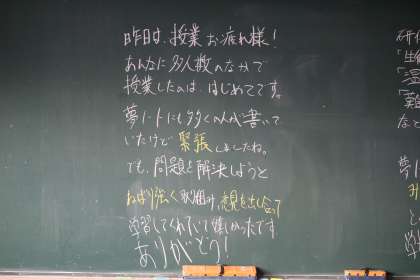 昨日は、授業お疲れ様！
あんなに多人数のなかで
授業したのは、はじめてです。
夢ノートにも多くの人が書いて
いたけど緊張しましたね。
でも、問題を解決しようと
ねばり強く取り組み、意見を出し合って
学習してくれていて嬉しかったです。
ありがとう！
研
「生